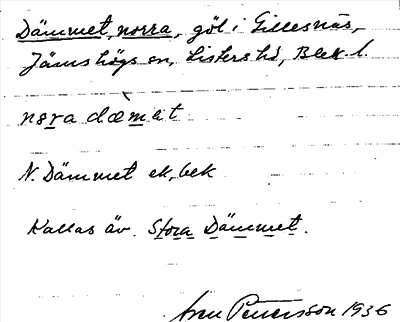 Dämmet, norra, göl i Gillesnäs,
Jämshögs sn, Listers hd, Blek. l.
nora dæ̀mət
N. Dämmet ek, bek
Kallas äv. Stora Dämmet.
Pettersson 1936